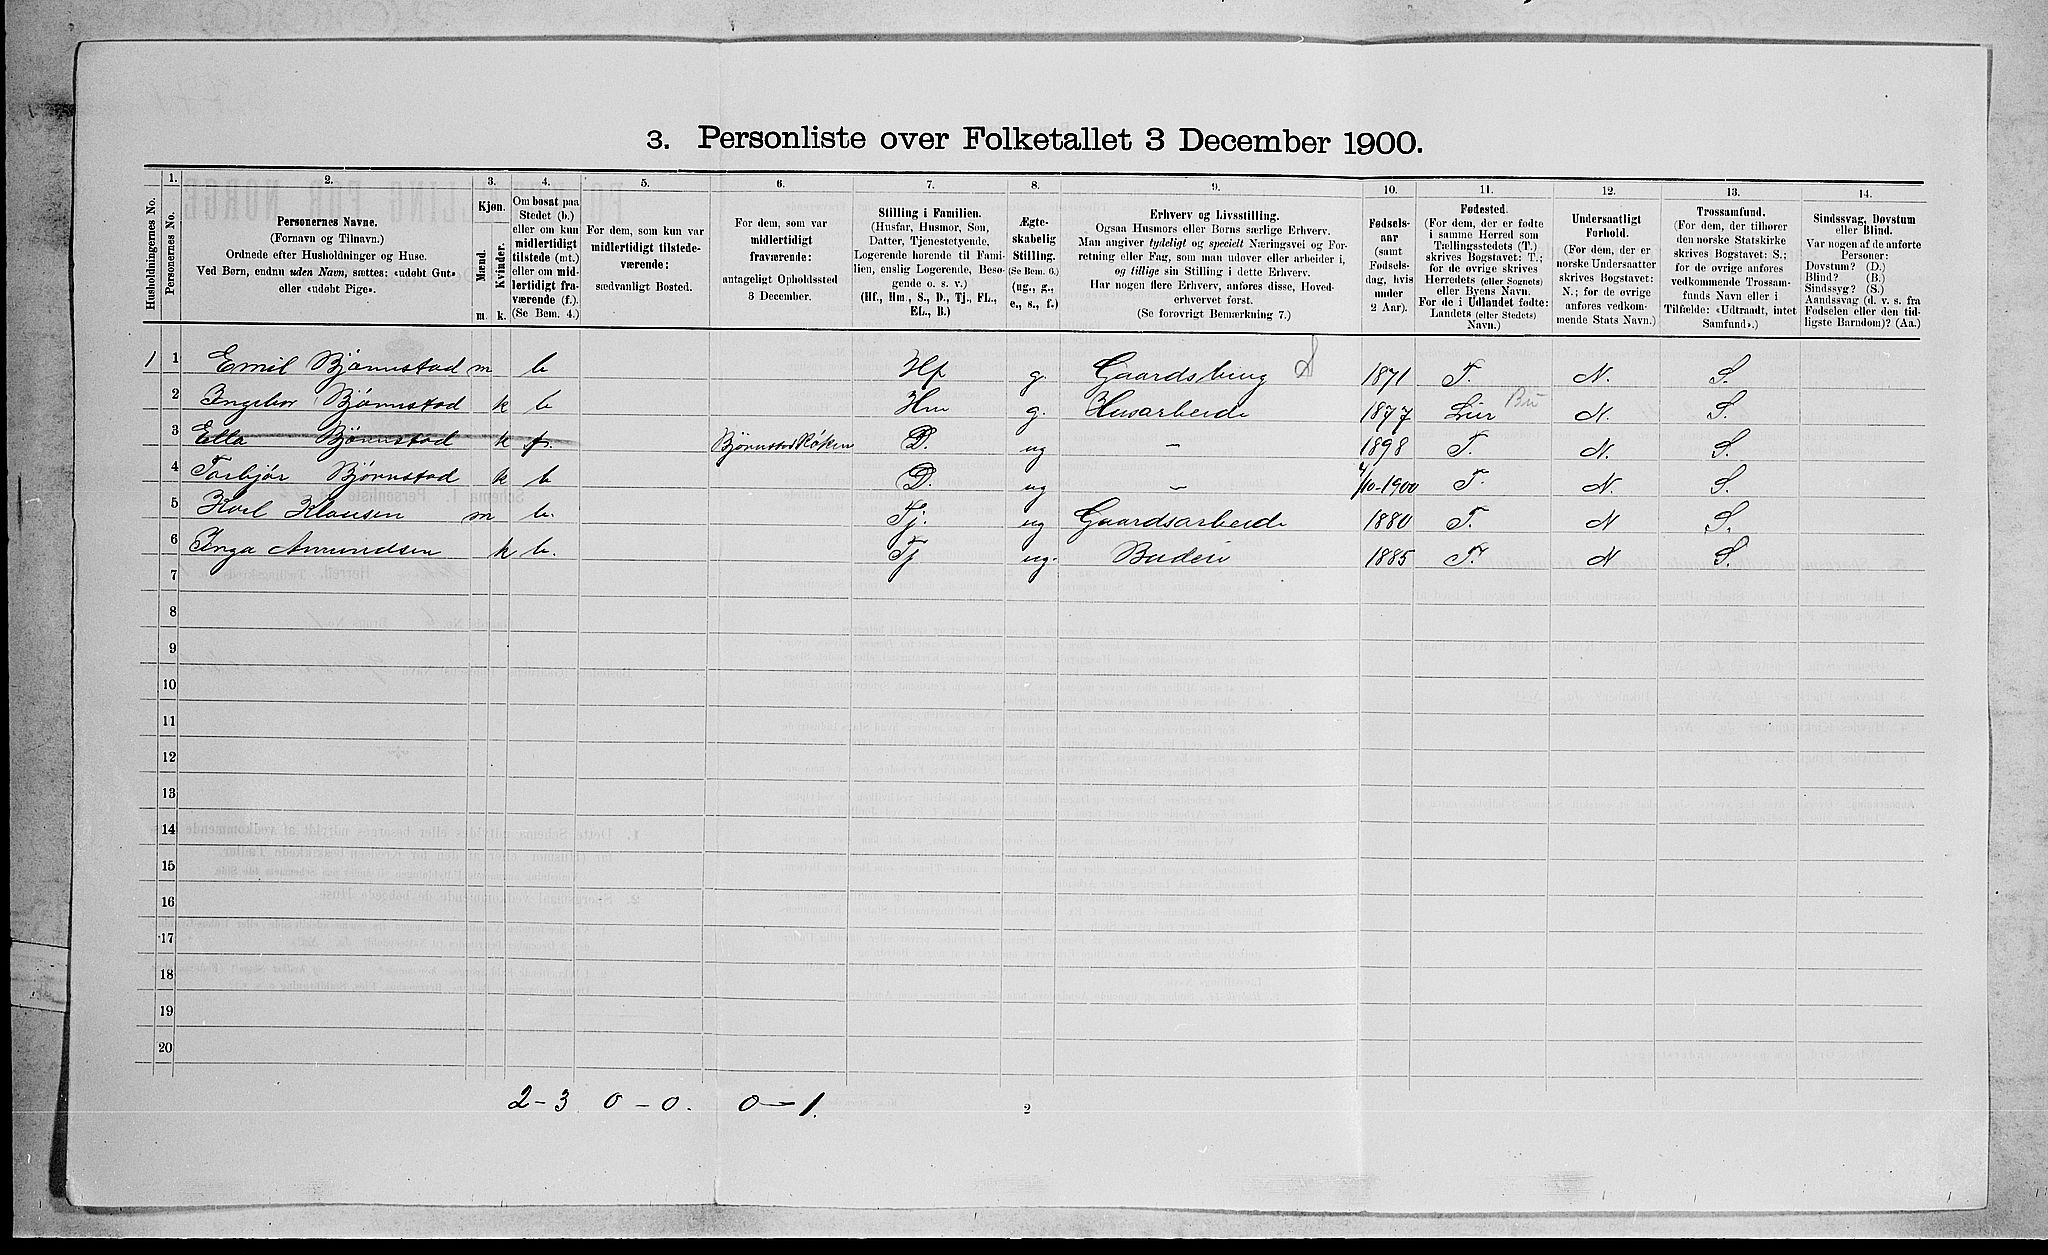 3. Personliste over Folketallet 3 December 1900.
1. 2. 3. 4. 5. 6. 7. 8. 9. 10. 11. 12. 13. 14.
Husholdningernes No.
Personernes No.
Personernes Navne.
(Fornavn og Tilnavn.)
Ordnede efter Husholdninger og Huse.
Ved Børn, endnu uden Navn, sættes: «udøbt Gut»
eller «udøbt Pige».
Kjøn.
Mænd.
Kvinder.
m. k.
Om bosat paa
Stedet (b.)
eller om kun
midlertidigt
tilstede (mt.)
eller om mid-
lertidigt fra-
værende (f.).
(Se Bem. 4.)
For dem, som kun var
midlertidigt tilstede-
værende:
sædvanligt Bosted.
For dem, som var
midlertidigt
fraværende:
antageligt Opholdssted
3 December.
Stilling i Familien.
(Husfar, Husmor, Søn,
Datter, Tjenestetyende,
Logerende hørende til Fami-
lien, enslig Logerende, Besø-
gende o. s. v.)
(Hf., Hm., S., D., Tj., FL.,
EL., B.)
Ægte-
skabelig
Stilling.
(Se Bem. 6.)
(ug., g.,
e., s., f.)
Erhverv og Livsstilling.
Ogsaa Husmors eller Børns særlige Erhverv.
Man angiver tydeligt og specielt Næringsvei og For-
retning eller Fag, som man udøver eller arbeider i,
og tillige sin Stilling i dette Erhverv.
Har nogen flere Erhverv, anføres disse, Hoved-
erhvervet først.
(Se forøvrigt Bemærkning 7.)
Fødsels-
aar
(samt
Fødsels-
dag, hvis
under
2 Aar).
Fødested.
(For dem, der er fødte
i samme Herred som
Tællingsstedets (T.)
skrives Bogstavet: T.;
for de øvrige skrives
Herredets (eller Sognets)
eller Byens Navn.
For de i Udlandet fødte:
Landets (eller Stedets)
Navn.)
Undersaatligt
Forhold.
(For dem, der er
norske Undersaatter
skrives Bogstavet:
N.; for de øvrige
anføres vedkom-
mende Stats Navn.)
Trossamfund.
(For dem, der tilhører
den norske Statskirke
skrives Bogstavet: S.;
for de øvrige anføres
vedkommende Trossam-
funds Navn eller i
Tilfælde: «Udtraadt, intet
Samfund».)
Sindssvag, Døvstum
eller Blind.
Var nogen af de anførte
Personer:
Døvstum? (D.)
Blind? (B.)
Sindssyg? (S.)
Aandssvag (d. v. s. fra
Fødselen eller den tid-
ligste Barndom)? (Aa.)
1 1 Emil Bjørnstad m b Hf g. Gaardsbrug 1871 T. N. S.
2 Ingebor Bjørnstad k b Hm g. Husarbeide 1877 Lier Bu N. S.
3 Ella Bjørnstad k f. Bjørnstad Røken D. ug – 1898 T. N. S.
4 Torbjør Bjørnstad k b D. ug – 4/10-1900 T. N. S.
5 Karl Klausen m b. Tj. ug Gaardsarbeide 1880 T. N S.
6 Inga Amundsen k b. Tj ug. Budeie 1885 T. N S.
7
8
9
10
11
12
13
14
15
16
17
18
19
20
2-3 0-0. 0-1.
2